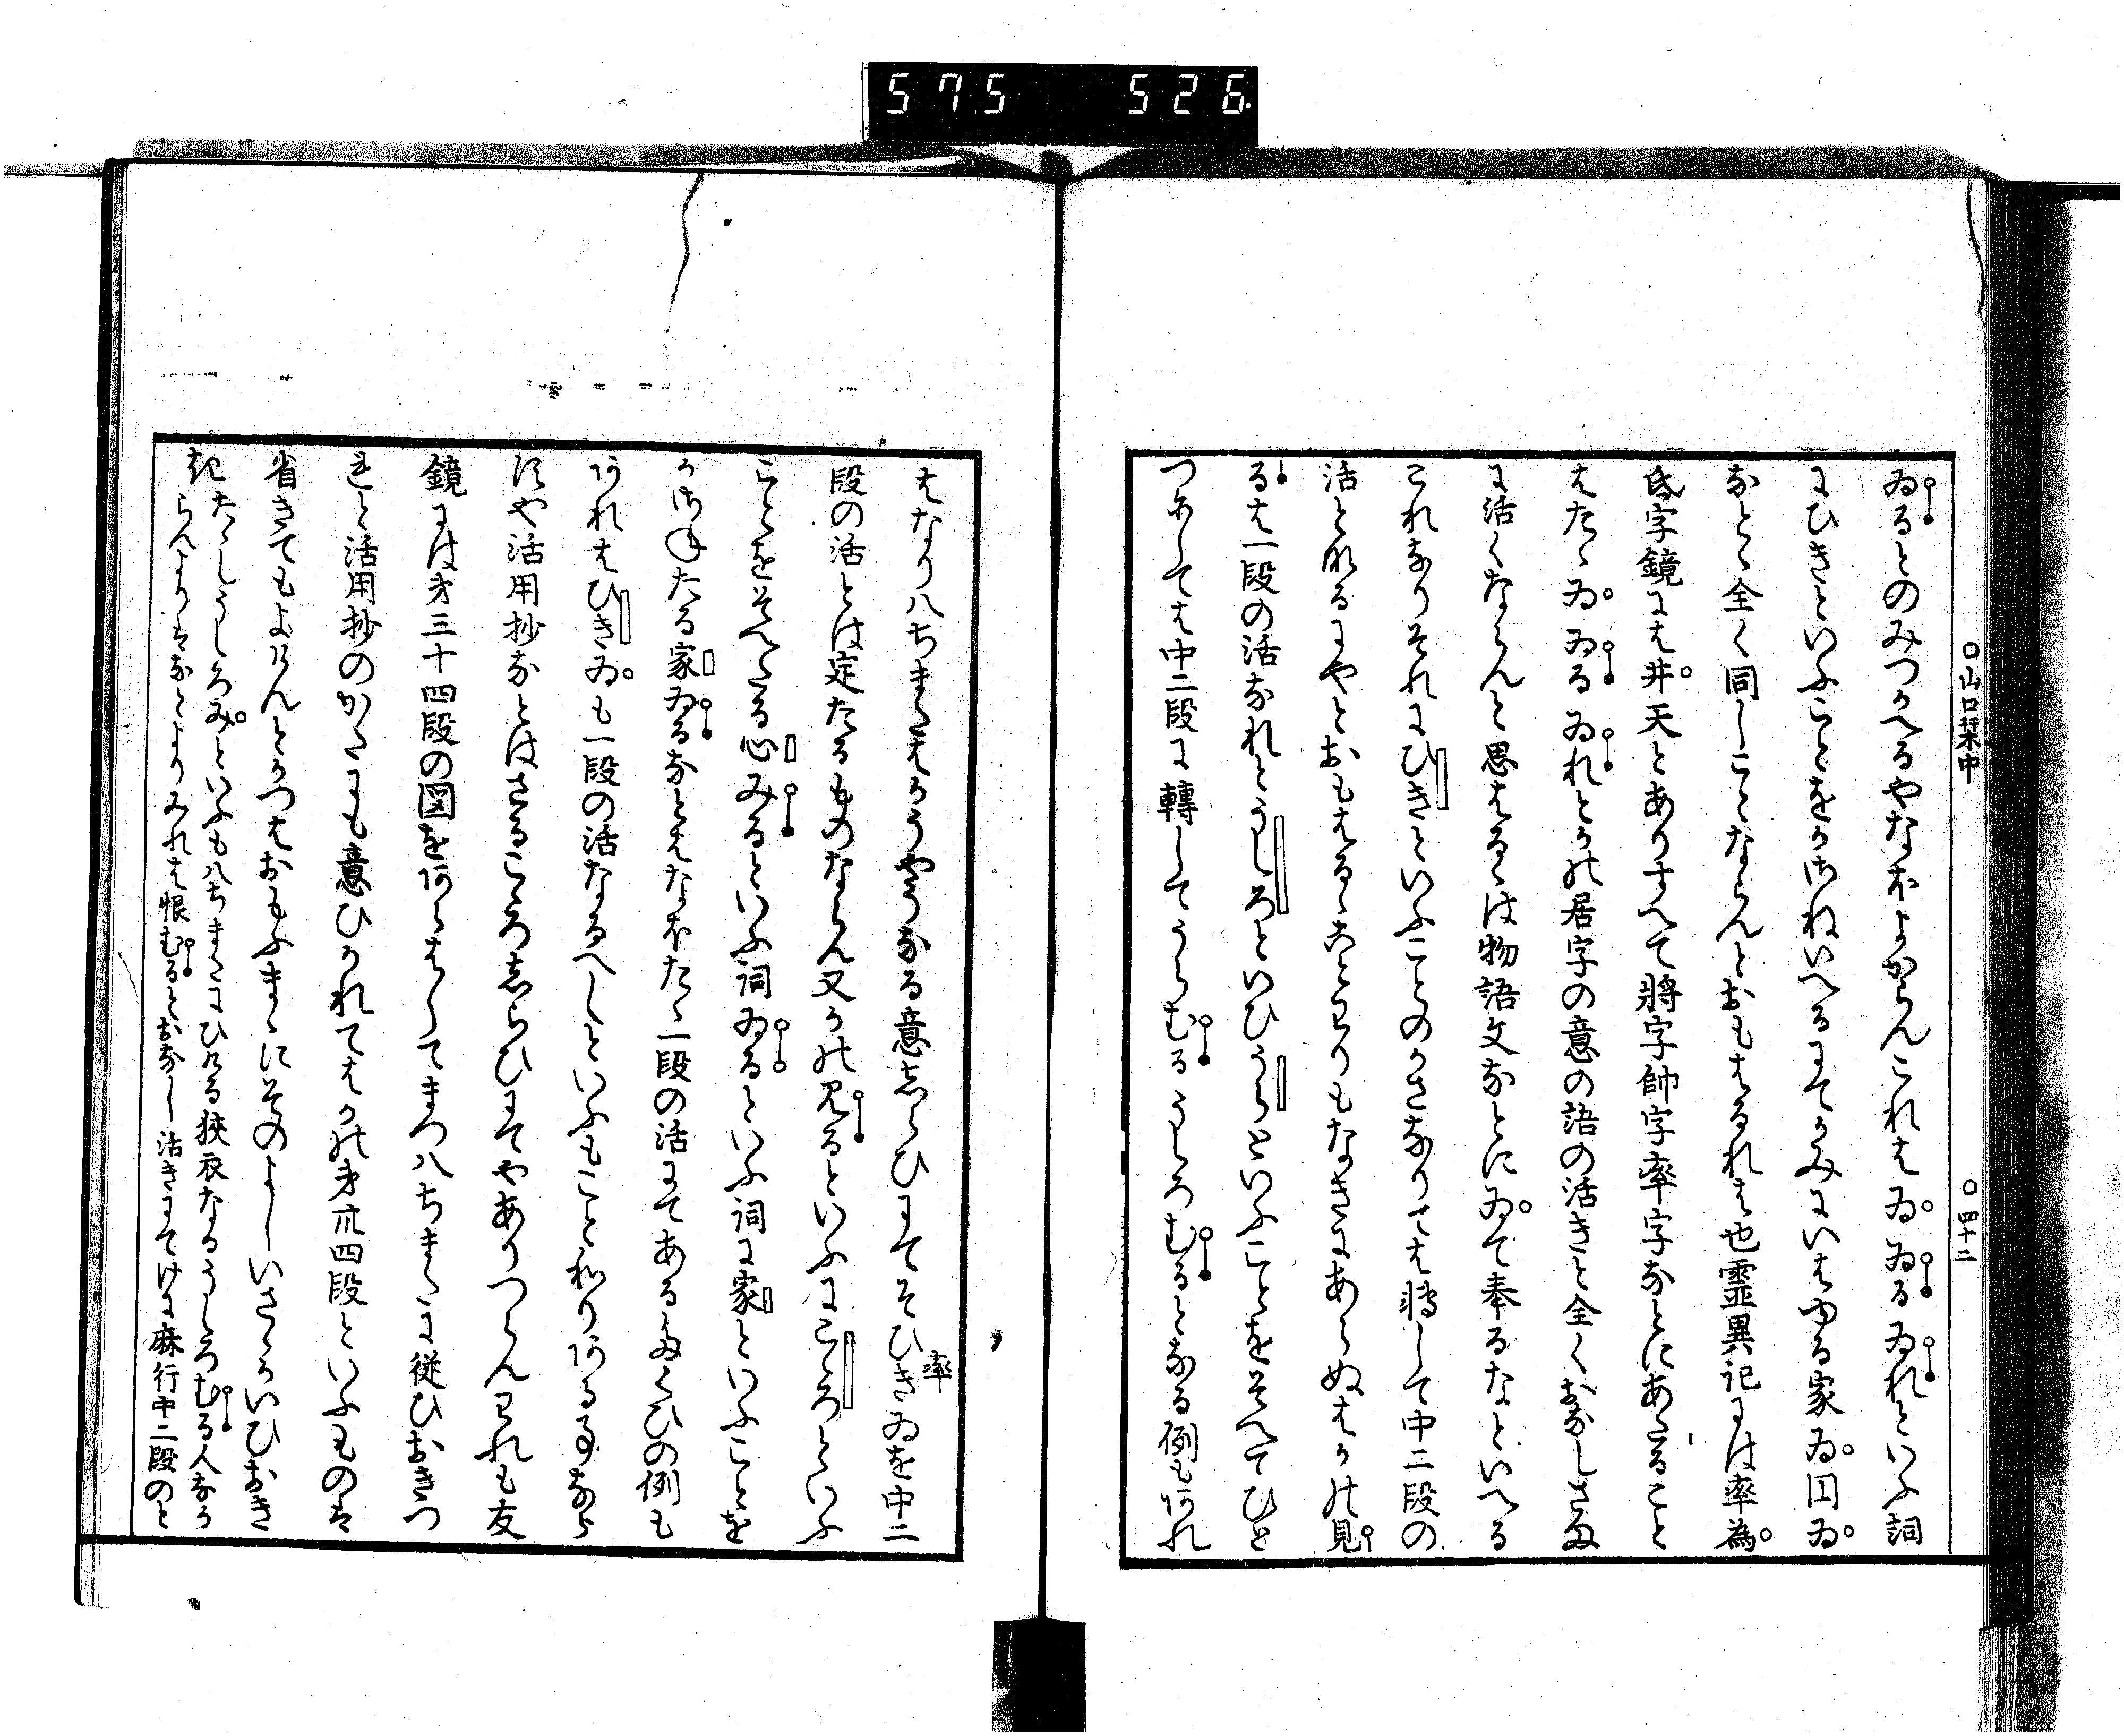 575 526
○山口栞中 ○四十二
ゐるとのみつかへるやなほよからんこれはゐゐるゐれといふ詞
にひきといふことをかさねいへるにてかみにいはゆる家ゐ田ゐ
なとゝ全く同しことならんとおもはるれは也霊異記には率為
氐字鏡には井天とありすへて将字帥字率字なとにあたること
はたゝゐゐるゐれとかの居字の意の語の活きと全くおなしさま
に活くならんと思はるゝは物語文なとにゐて奉るなといへる
これなりそれにひきといふことのかさなりては転して中二段の
活となるにやとおもはるゝことわりもなきにあらぬはかの見
るは一段の活なれとうしろといひうらといふことをそへてひと
つにしては中二段に轉してうらむるうしろむるとなる例もあれ
はなり八ちまたはかうやうなる意しらひにてそひき率ゐを中二
段の活とは定たるものならん又かの見るといふにこゝろといふ
ことをそへたる心みるといふ詞ゐるといふ詞に家といふことを
かさねたる家ゐるなとはなほたゝ一段の活にてあるたくひの例も
あれはひきゐも一段の活なるへしといふもことわりある事なら
すや活用抄なとはさるこゝろしらひにてやありつらんわれも友
鏡には才三十四段の図をあらはしてまつ八ちまたに従ひおきつ
れと活用抄のかたにも意ひかれてはかの才卅四段といふものは
省きてもよけんとかつはおもふまゝにそのよしいさゝかいひおき
たゝしうしろみといふも八ちまたにひける狭衣なるうしろむる人なか
らんよりはなとよりみれは恨むるとおなし活きにてけに麻行中二段のと